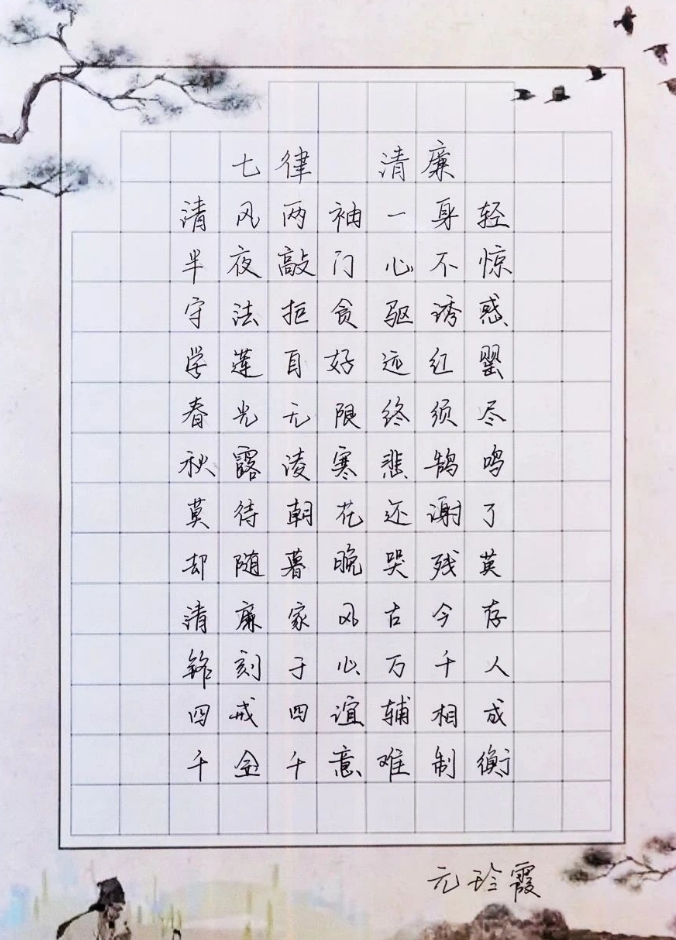 七律 清廉
清风两袖一身轻
半夜敲门心不惊
守法拒贪驱诱惑
学莲自好远红翟
春光无限终须尽
秋露凌寒悲鹄鸣
莫待朝花还谢了
却随暮晚哭残英
清廉家风古今存
铭刻于心万千人
四戒四谊辅相成
千金千意难制衡
元玲霞